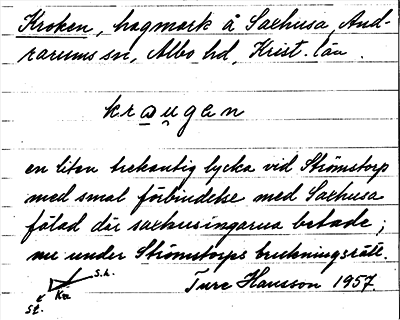 Kroken, hagmark å Saxhusa, And-
rarums sn, Albo hd, Krist. län.
kraugan
en liten trekantig lycka vid Strömstorp
med smal förbindelse med Saxhusa
fälad där saxhusingarna betade;
nu under Strömstorps brukningsrätt.
S.h.
Kr
St.
Ture Hansson 1957.